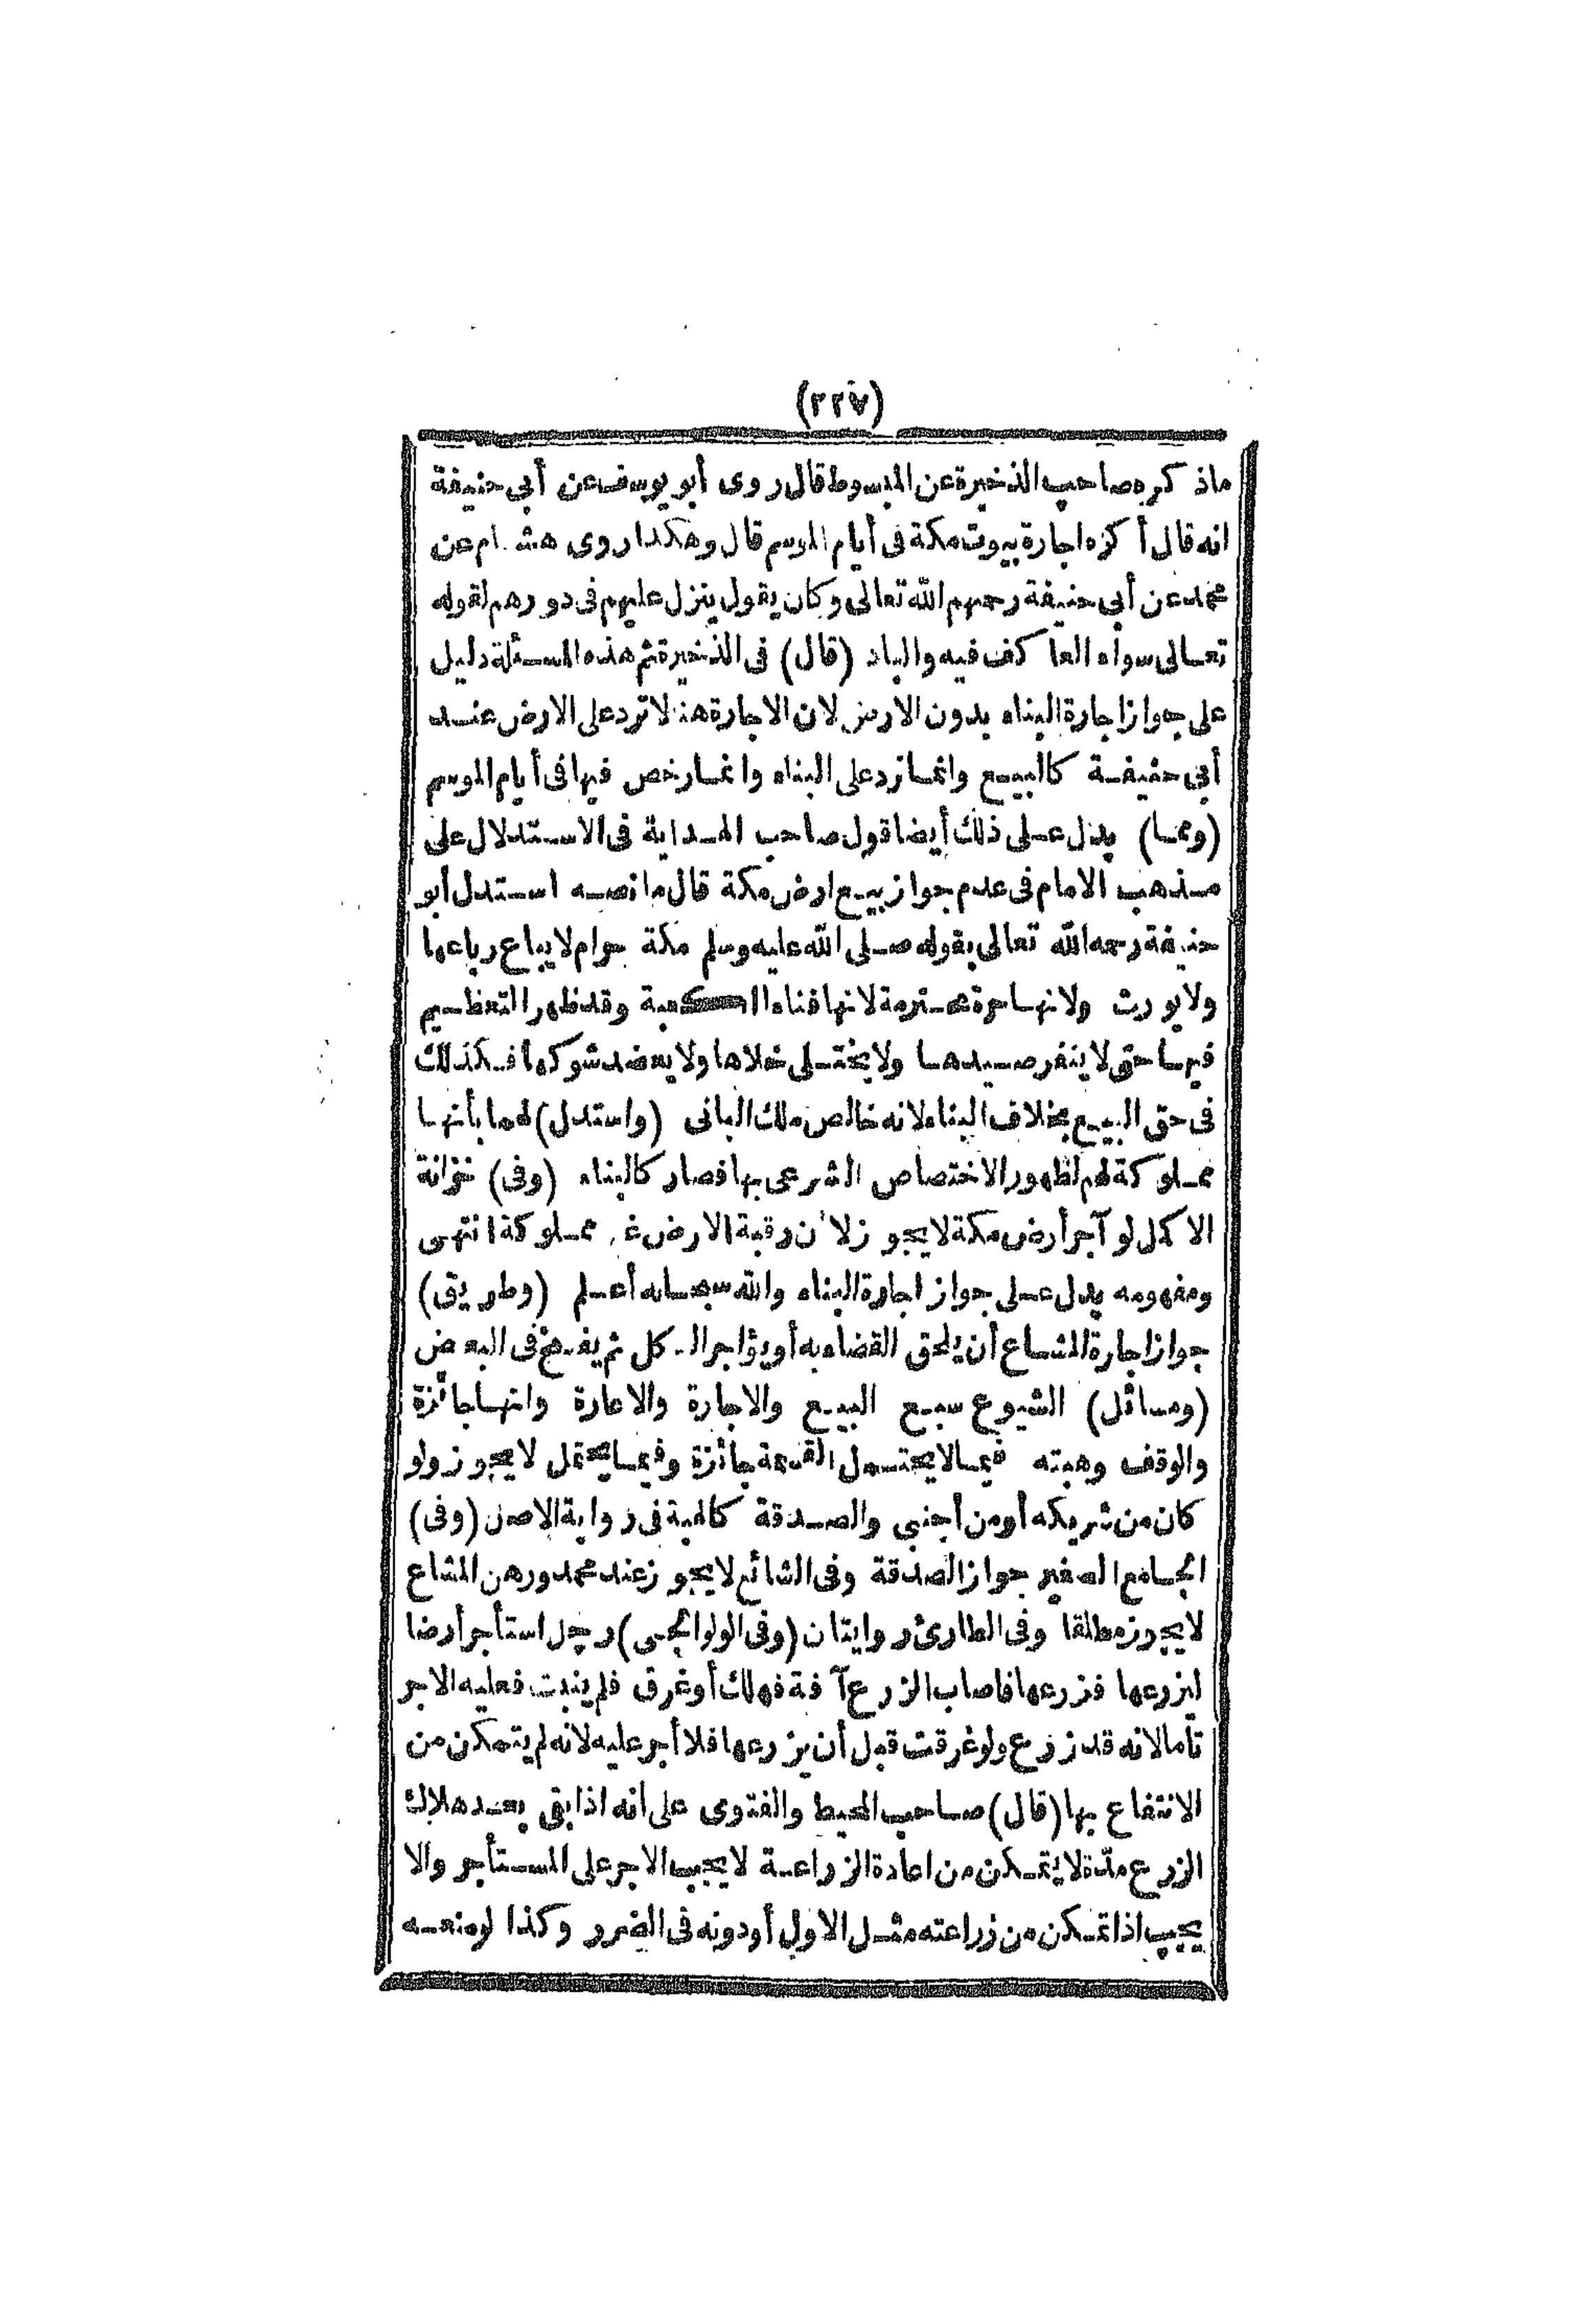 (٢٢٧)
ماذكره صاحب الذخيرة عن المبسوط قال روى أبو يوسف عن أبي حنيفة
انه قال أكره اجارة بيوت مكة فى أيام الموسم قال وهكذا روى هشام عن
محمد عن أبى حنيفة رحمهم الله تعالى وكان يقول ينزل عليهم فى دورهم لقوله
تعالى سواء العاكف فيه والباد (قال) فى الذخيرة ثم هذه المسئلة دليل
على جواز اجارة البناء بدون الارض لان الاجارة هنا لا ترد على الارض عند
أبى حنيفة كالبيع وانما ترد على البناء وانما رخص فيها فى أيام الموسم
(ومما) يدل على ذلك أيضا قول صاحب الهداية فى الاستدلال على
مذهب الامام فى عدم جواز بيع ارض مكة قال ما نصه استدل أبو
حنيفة رحمه الله تعالى بقوله صلى الله عليه وسلم مكة حرام لا يباع رباعها
ولا يورث ولانها حرة محترمة لانها فناء الكعبة وقد ظهر التعظيم
فيها حتى لا ينفر صيدها ولا يختلى خلاها ولا يعضد شوكها فكذلك
فى حق البيع بخلاف البناء لانه خالص ملك البانى (واستدل) لهما بأنها
مملوكة لهم لظهور الاختصاص الشرعى بها فصار كالبناء (وفى) خزانة
الاكمل لو آجر أرض مكة لا يجوز لأن رقبة الارض غير مملوكة انتهى
ومفهومه يدل على جواز اجارة البناء والله سبحانه أعلم (وطريق)
جواز اجارة المشاع أن يلحق القضاء به أو يؤاجر الكل ثم يفسخ فى البعض
(ومسائل) الشيوع سبع البيع والاجارة والاعارة وانها جائزة
والوقف وهبته فيما لا يحتمل القسمة جائزة وفيما يحتمل لا يجوز ولو
كان من شريكه أو من أجنبى والصدقة كالهبة فى رواية الاصل (وفى)
الجامع الصغير جواز الصدقة وفى الشائع لا يجوز عند محمد ورهن المشاع
لا يجوز مطلقا وفى الطارئ روايتان (وفى الولوالجى) رجل استأجر أرضا
ليزرعها فزرعها فاصاب الزرع آفة فهلك أو غرق فلم ينبت فعليه الاجر
تاما لانه قد زرع ولو غرقت قبل أن يزرعها فلا أجر عليه لانه لم يتمكن من
الانتفاع بها (قال) صاحب المحيط والفتوى على انه اذا بقى بعد هلاك
الزرع مدة لا يتمكن من اعادة الزراعة لا يجب الاجر على المستأجر والا
يجب اذا تمكن من زراعته مثل الاول أو دونه فى الضرر وكذا لو منعه